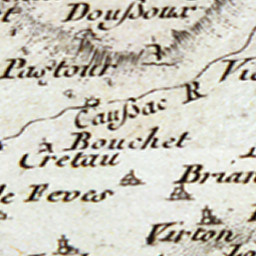 Doußoux
Pastour
Vi
Caußac R
Bouchet
Cretau
Brian
le Feves
Virton